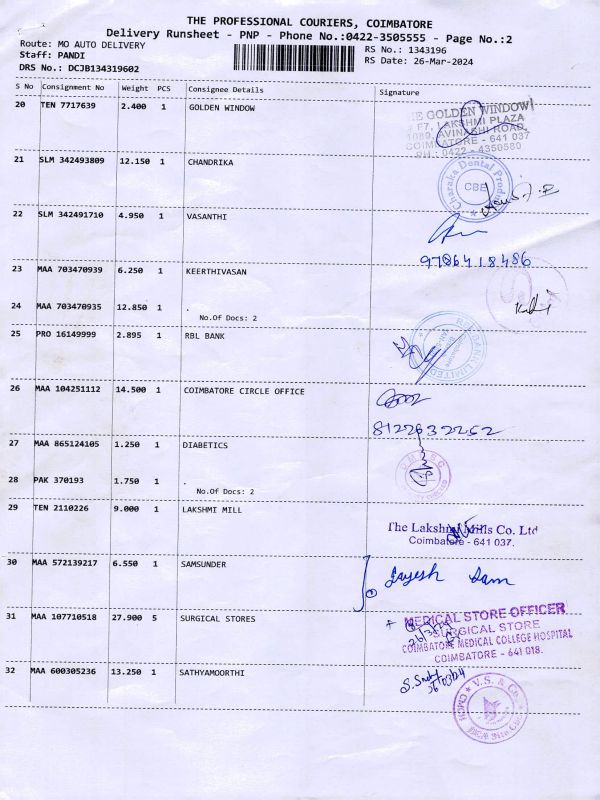 THE PROFESSIONAL COURIERS, COIMBATORE
Delivery Runsheet - PNP - Phone No.:0422-3505555 - Page No.:2
Route: MO AUTO DELIVERY
RS No.: 1343196
Staff: PANDI
RS Date: 26-Mar-2024
DRS No.: DCJB134319602
S No Consignment No Weight PCS Consignee Details Signature
20 TEN 7717639 2.400 1 GOLDEN WINDOW
THE GOLDEN WINDOW
F7, LAKSHMI PLAZA
1089, AVINASHI ROAD,
COIMBATORE - 641 037
PH : 0422 - 4350580
21 SLM 342493809 12.150 1 CHANDRIKA
Charaka Dental Products
CBE
22 SLM 342491710 4.950 1 VASANTHI
9786418486
23 MAA 703470939 6.250 1 KEERTHIVASAN
24 MAA 703470935 12.850 1 .
No.Of Docs: 2
25 PRO 16149999 2.895 1 RBL BANK
RBL BANK LIMITED
26 MAA 104251112 14.500 1 COIMBATORE CIRCLE OFFICE
8122632252
27 MAA 865124105 1.250 1 DIABETICS
28 PAK 370193 1.750 1 .
No.Of Docs: 2
29 TEN 2110226 9.000 1 LAKSHMI MILL
The Lakshmi Mills Co. Ltd
Coimbatore - 641 037.
30 MAA 572139217 6.550 1 SAMSUNDER
Jayesh Sam
31 MAA 107710518 27.900 5 SURGICAL STORES
MEDICAL STORE OFFICER
SURGICAL STORE
COIMBATORE MEDICAL COLLEGE HOSPITAL
COIMBATORE - 641 018.
32 MAA 600305236 13.250 1 SATHYAMOORTHI
26/03/24
V.S. & Co.
CMCH